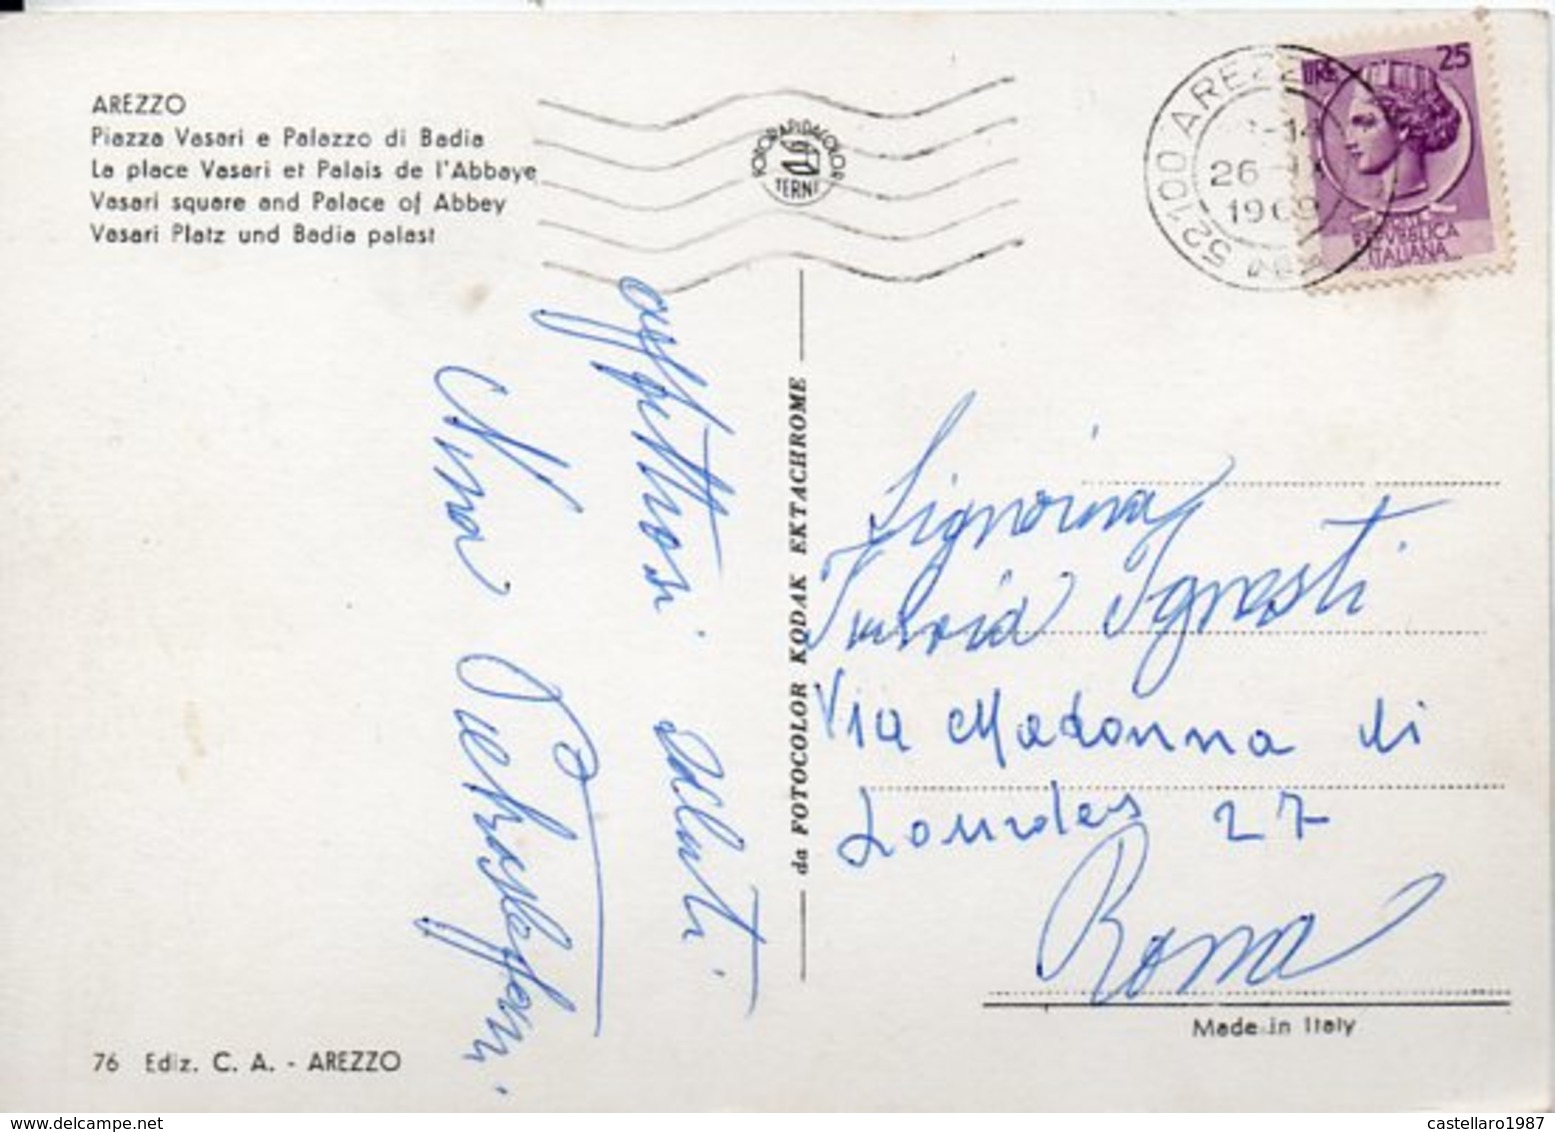 AREZZO
Piazza Vasari e Palazzo di Badia
La place Vasari et Palais de l'Abbaye
Vasari square and Palace of Abbey
Vasari Platz und Badia palast
FOTORAPIDACOLOR
TERNI
52100 AREZZO
26
1969
LIRE 25
REPVBBLICA
ITALIANA
affettuosi saluti
Nina
da FOTOCOLOR KODAK EKTACHROME
Signorina
Ignesti
Via Madonna di
Lourdes 27
Roma
Made in Italy
76 Ediz. C. A. - AREZZO
castellaro1987